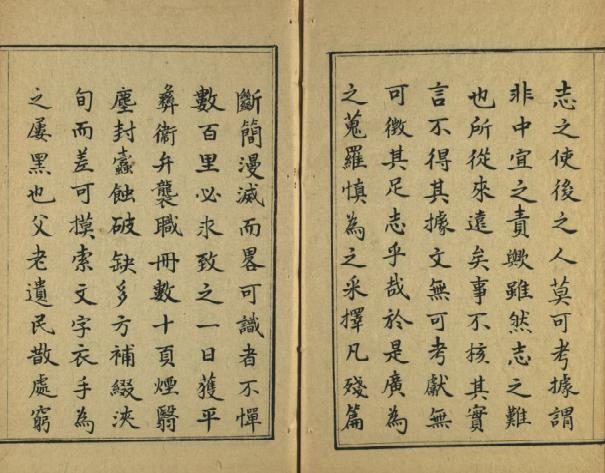 志之使後之人莫可考據謂
非中宜之責歟雖然志之難
也所從來遠矣事不核其實
言不得其據文無可考獻無
可徵其足志乎哉於是廣為
之蒐羅慎為之采擇凡殘篇
斷簡漫滅而畧可識者不憚
數百里必求致之一日獲平
彝衛弁襲職冊數十頁煙翳
塵封蠹蝕破缺多方補綴浹
旬而差可摸索文字衣手為
之屢黑也父老遺民散處窮